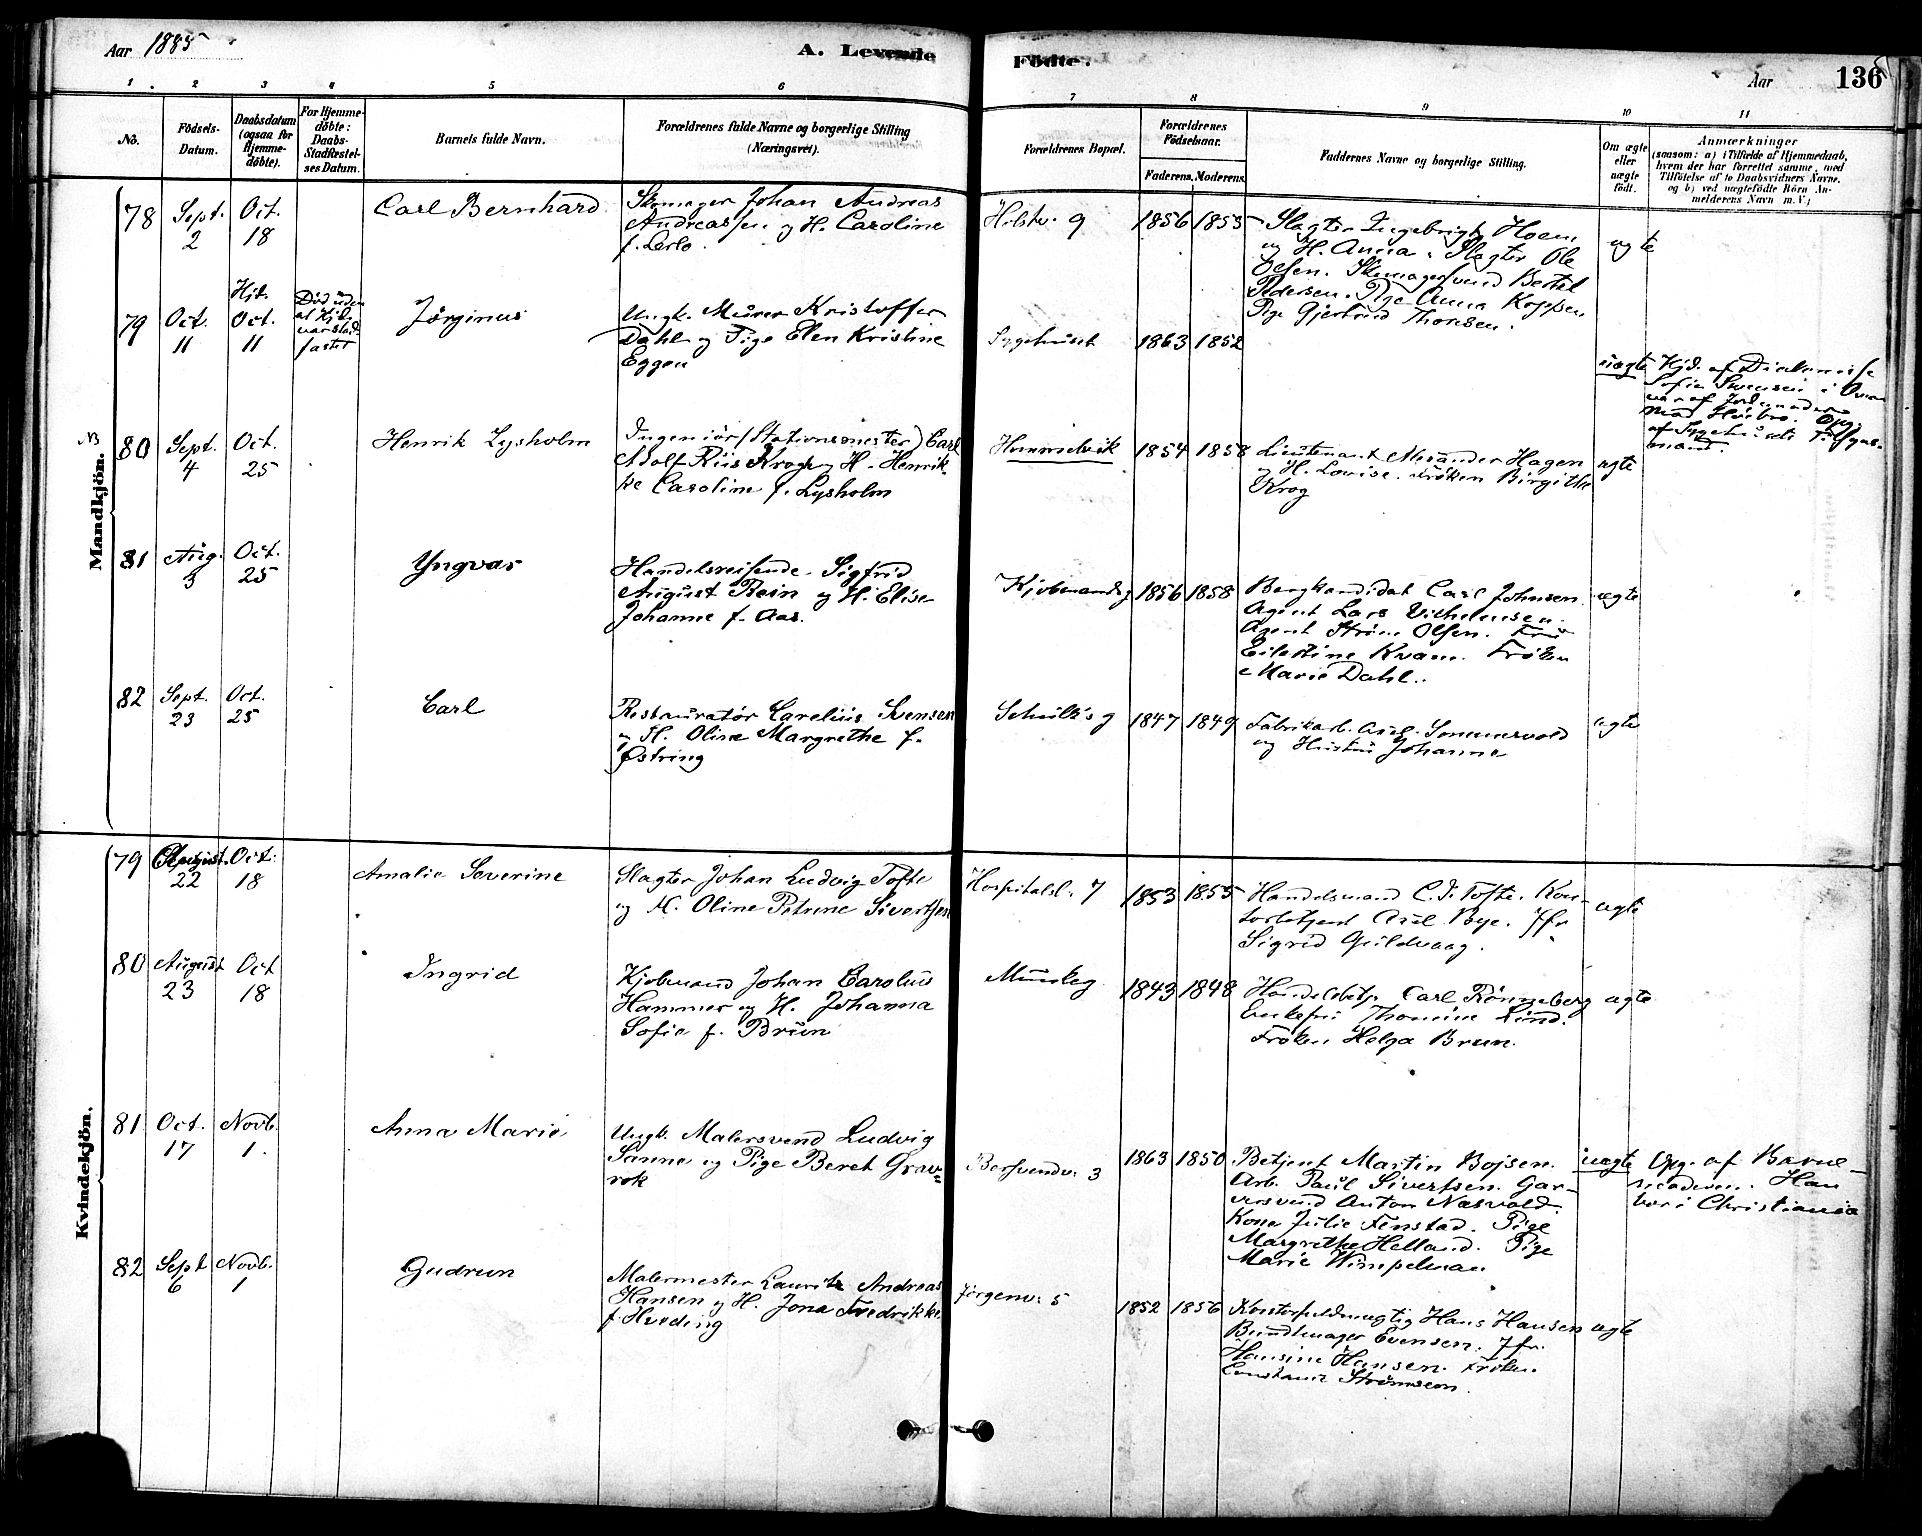 Aar 1885
A. Levende
Födte.
Aar
136
1
2
3
4
5
6
7
8
9
10
11
No.
Födsels-
Datum.
Daabsdatum
(ogsaa for
Hjemme-
döbte).
For Hjemme-
döbte:
Daabs-
Stadfæstel-
ses Datum.
Barnets fulde Navn.
Forældrenes fulde Navne og borgerlige Stilling
(Næringsvei).
Forældrenes Bopæl.
Forældrenes
Födselsaar.
Faderens.
Moderens.
Faddernes Navne og borgerlige Stilling.
Om ægte
eller
uægte
födt.
Anmærkninger
(saasom: a) i Tilfælde af Hjemmedaab,
hvem der har forrettet samme, med
Tilföielse af to Daabsvidners Navne,
og b) ved uægtefödte Börn An-
melderens Navn m.V.;
Mandkjön.
78
Sept.
2
Oct.
18
Carl Bernhard
Skomager Johan Andreas
Andreassen og H. Caroline
f. Lerlo.
Holstv. 9
1856
1855
Slagter Ingebrigt Hoem
og H. Anna. Slagter Ole
Olsen. Skomagersvend Bertil
Pedersen. Pige Anna Koppen
Pige Gjertrud Thoresen.
ægte
79
Oct.
11
Hjd.
Oct.
11
Død uden
at Hjd.
var stad-
fæstet
Jørginus
Ungk. Murer Kristoffer
Dahl og Pige Elen Kristine
Eggen
Sygehuset
1863
1852
uægte
Hjd. af Diakonisse
Sofie Svensen i Over
vær af Jordemoder
af Sygehusets
NB
80
Sept.
4
Oct.
25
Henrik Lysholm
Ingeniör (Stationsmester) Carl
Adolf Riis Krog og H. Henrik-
ke Caroline f. Lysholm
Hommelvik
1854
1858
Lieutenant Alexander Hagen
og H. Lovise. Frøken Birgitte
Krog
ægte
81
Aug.
3
Oct.
25
Yngvar
Handelsreisende Sigfrid
August Rein og H. Elise
Johanne f. Aas.
Kjøbmandsg
1856
1858
Bergkandidat Carl Johnsen.
Agent Lars Vilhelmsen.
Agent Strøm Olsen. Fru
Eilertine Kvam. Frøken
Marie Dahl.
ægte
82
Sept.
23
Oct.
25
Carl
Restauratør Carelius Svensen
og H. Oline Margrethe f.
Østring
Schultsg
1847
1849
Fabrikarb. Axel Sommervold
og Hustru Johanne
ægte
Kvindekjön.
79
August.
22
Oct.
18
Amalie Severine
Slagter Johan Ludvig Tofte
og H. Oline Petrine Sivertsen
Hospitalsl. 7
1853
1855
Handelsmand C. J. Tofte. Kon-
torbetjent Axel Bye. Jfr
Sigrid Guldvaag.
ægte
80
August
23
Oct
18
Ingrid
Kjøbmand Johan Carolus
Hammer og H. Johanna
Sofie f. Brun
Munkeg
1843
1848
Handelsbetj. Carl Rønneberg
Enkefru Thomine Lund.
Frøken Helga Brun.
ægte
81
Oct.
17
Novb.
1.
Anna Marie
Ungk. Malersvend Ludvig
Sanne og Pige Beret Grav=
rok
Bersvendv. 3
1863
1850
Betjent Martin Bojsen.
Arb. Paul Sivertsen. Gar-
versvend Anton Næsvold.
Kone Julie Fenstad. Pige
Margrethe Helland. Pige
Marie Wimpelman
uægte
Opg. af Barne-
moderen. Han
bor i Christiania
82
Sept
6
Novb.
1
Gudrun
Malermester Lauritz Andreas
Hansen og H. Jona Fredrikke
f. Hveding
Jørgenv. 5
1852
1856
Kontorfuldmægtig Hans Hansen
Bundtmager Evensen. Jfr.
Hansine Hansen. Frøken
Constance Strømsøen.
ægte